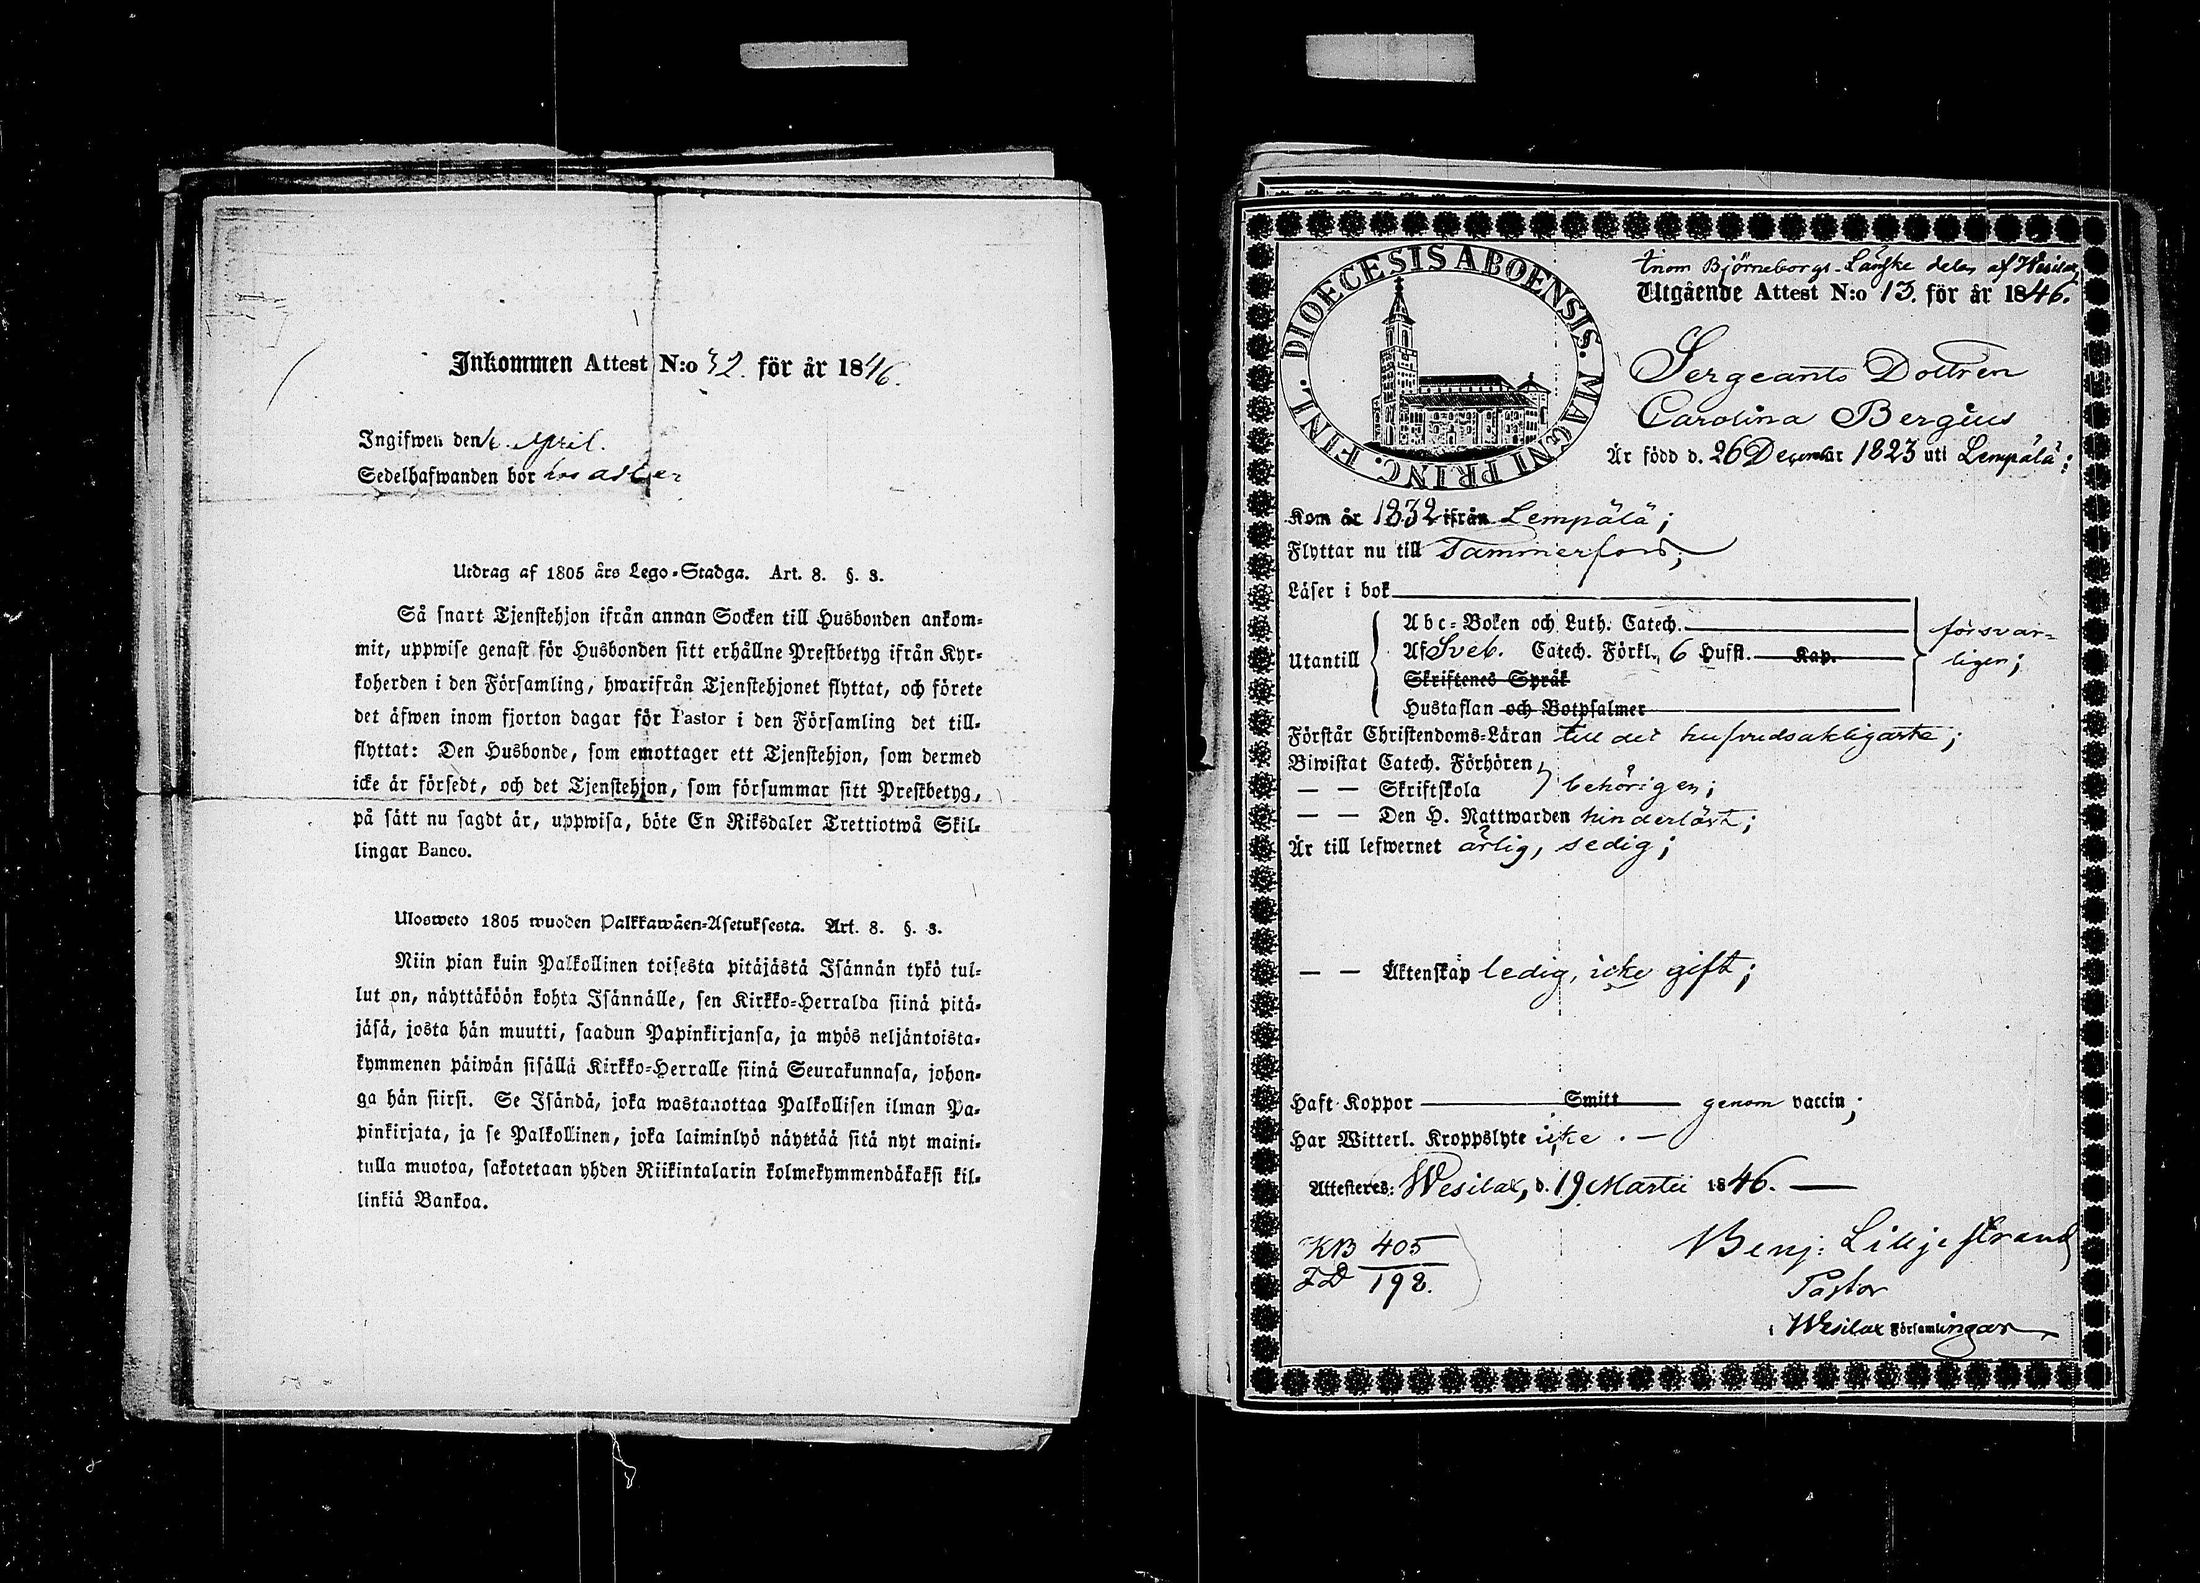 Inkommen Attest N:o 32. för år 1846.
Ingifwen den April.
Sedelhafwanden bor hos
Utdrag af 1805 års Lego-Stadga. Art. 8. §. 3.
Så snart Tjenstehjon ifrån annan Socken till Husbonden ankom-
mit, uppwise genast för Husbonden sitt erhållne Prestbetyg ifrån Kyr-
koherden i den Församling, hwarifrån Tjenstehjonet flyttat, och förete
det äfwen inom fjorton dagar för Pastor i den Församling det till-
flyttat: Den Husbonde, som emottager ett Tjenstehjon, som dermed
icke är försedt, och det Tjenstehjon, som försummar sitt Prestbetyg,
på sätt nu sagdt är, uppwisa, böte En Riksdaler Trettiotwå Skil-
lingar Banco.
Ulosweto 1805 wuoden Palkkawäen-Asetuksesta. Art. 8. §. 3.
Niin pian kuin Palkollinen toisesta pitäjästä Isännän tykö tul-
lut on, näyttäköön kohta Isännälle, sen Kirkko-Herralda siinä pitä-
jäsä, josta hän muutti, saadun Papinkirjansa, ja myös neljäntoista-
kymmenen päiwän sisällä Kirkko-Herralle siinä Seurakunnasa, johon-
ga hän siirsi. Se Isändä, joka wastanottaa Palkollisen ilman Pa-
pinkirjata, ja se Palkollinen, joka laiminlyö näyttää sitä nyt maini-
tulla muotoa, sakotetaan yhden Riikintalarin kolmekymmendäkaksi kil-
linkiä Bankoa.
DIOECESIS ABOENSIS. MAGNI PRINC. FINL.
Inom Björneborgs-Länske delen af Wesilax
Utgående Attest N:o 13. för år 1846.
Sergeants Dottren
Carolina Bergius
Är född d. 26 December 1823 uti Lempälä;
Kom år 1832 ifrån Lempälä;
Flyttar nu till Tammerfors;
Läser i bok
Utantill
Abc-Boken och Luth. Catech.
Af Sveb. Catech. Förkl., 6 Hufst. Kap.
Skriftenes Språk
Hustaflan och Botpsalmer
försvar-
ligen;
Förstår Christendoms-Läran till det hufvudsakligaste;
Biwistat Catech. Förhören
— — Skriftskola behörigen;
— — Den H. Nattwarden hinderlöst;
Är till lefwernet ärlig, sedig;
— — Äktenskap ledig, icke gift;
Haft Koppor Smitt genom vaccin;
Har Witterl. Kroppslyte icke. —
Attesteres: Wesilax, d. 19 Martii 1846. —
KB 405
FD 198.
Benj: Lilljestrand
Pastor
i Wesilax Församlingar